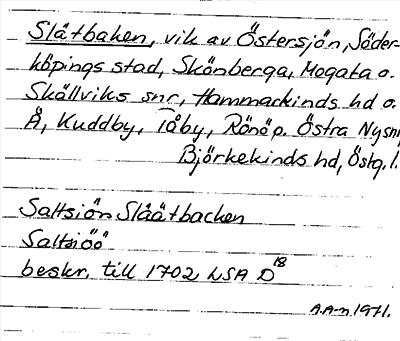 Slätbaken, vik av Östersjön, Söder-
köpings stad, Skönberga, Mogata o.
Skällviks snr, Hammarkinds hd o.
Å, Kuddby, Tåby, Rönö p. Östra Nysnr,
Björkekinds hd, Östg. l.
Saltsiön Slåätbacken
Saltsiöö
beskr. till 1702 LSA D 18
A.A-n 1971.